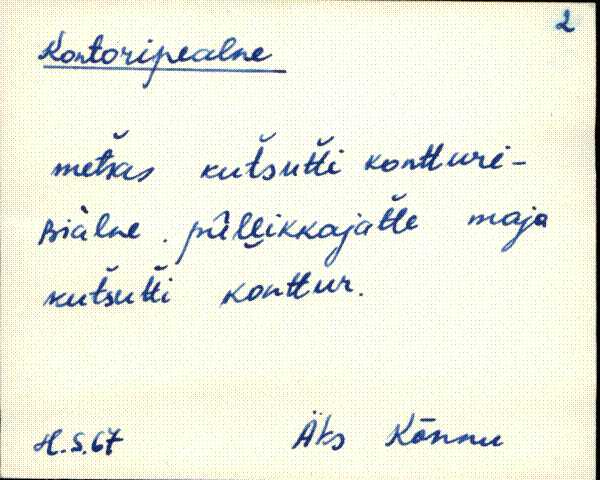 2
Kontoripealne
metsas kutsutti kontturi-
piàlne. pìllikkajatte maja
kutsutti konttur.
H.S. 67 Äks Kõnnu